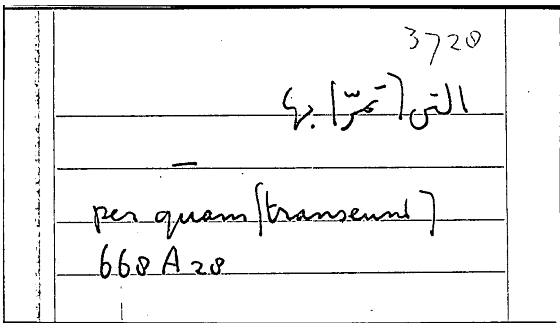 3728
التى [تمرّ] بها
per quam [transeunt]
668 A 28